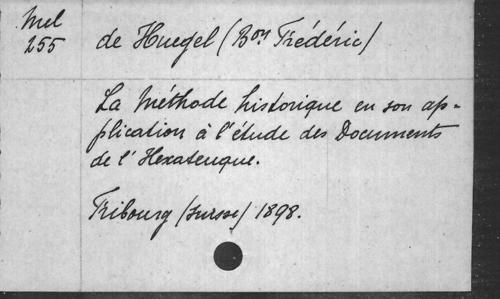 Mel
255
de Huegel (Bon Frédéric)
La Méthode historique en son ap-
plication à l'étude des Documents
de l'Hexateuque.
Fribourg (Suisse) 1898.